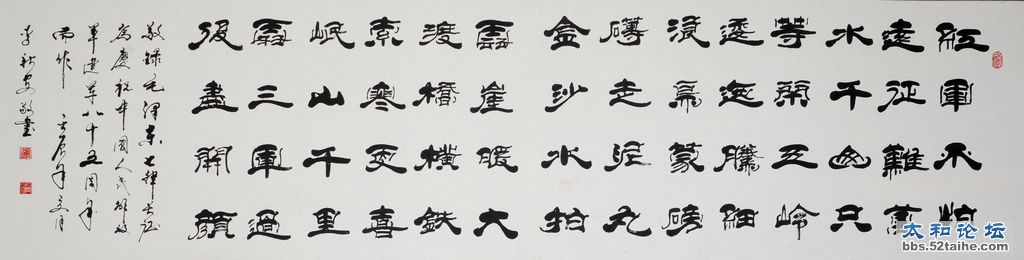 紅軍不怕
遠征難萬
水千山只
等閑五岭
逶迤騰細
浪烏蒙磅
礴走泥丸
金沙水拍
雲崖暖大
渡橋橫鐵
索寒更喜
岷山千里
雪三軍過
後盡開顏
敬錄毛澤東七律長征
為慶祝中國人民解放
軍建軍八十五周年
而作 壬辰年夏月
李秋 敬書
太和论坛
bbs.52taihe.com